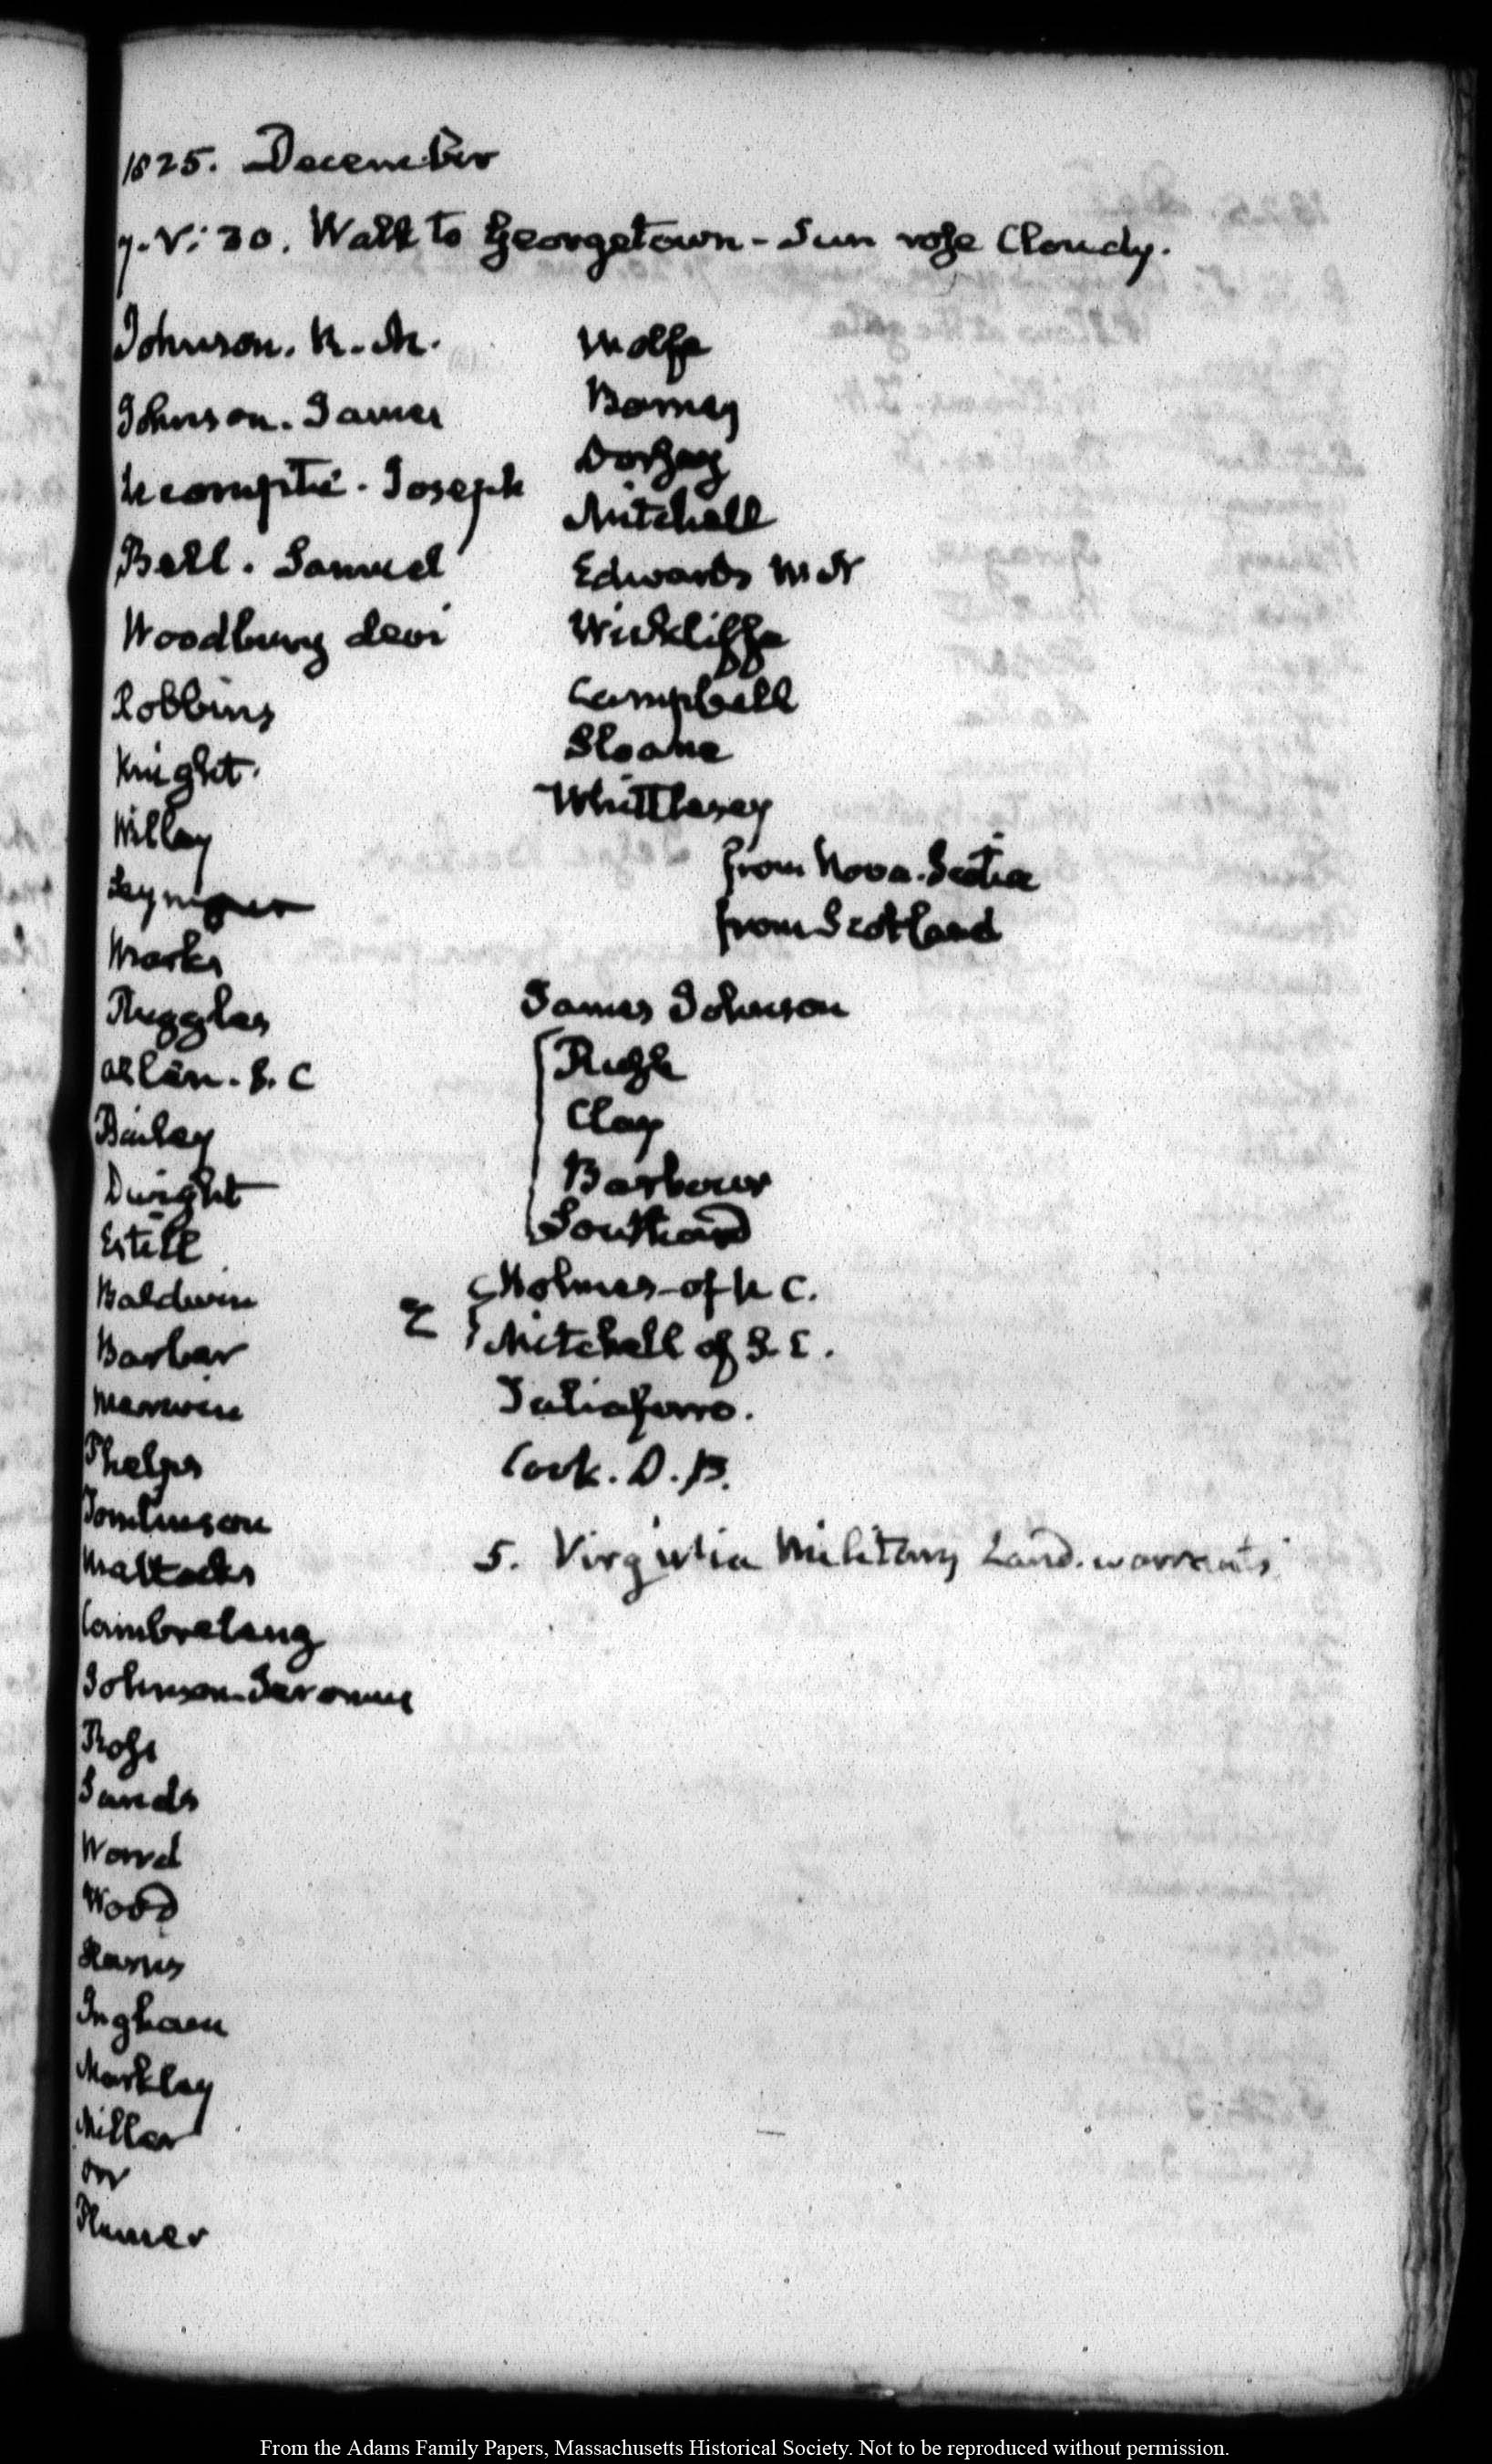 1825. December
7. V: 30. Walk to Georgetown - Sun rose Cloudy.
Johnson. R. M.
Johnson. James
Lecompte. Joseph
Bell. Samuel
Woodbury Levi
Robbins
Knight.
Willey
Seymour
Marks
Ruggles
Allen. S. C
Bailey
Dwight
Estill
Baldwin
Barber
Merwin
Phelps
Tomlinson
Mattocks
Cambreleng
Johnson. Jeromus
Ross
Sands
Ward
Wood
Harris
Ingham
Markley
Miller
Orr
Plumer
Wolfe
Barney
Dorsey
Mitchell
Edwards W N
Wickliffe
Campbell
Sloane
Whittlesey
from Nova-Scotia
from Scotland
James Johnson
Rush
Clay
Barbour
Southard
2 Holmes of N C.
Mitchell of S. C.
Taliaferro.
Cook. D. P.
5. Virginia Military Land. warrants
From the Adams Family Papers, Massachusetts Historical Society. Not to be reproduced without permission.